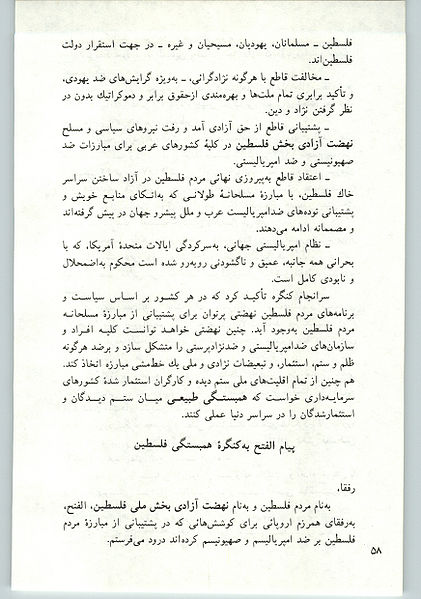 فلسطین ـ مسلمانان، یهودیان، مسیحیان و غیره ـ در جهت استقرار دولت
فلسطین‌اند.
ـ مخالفت قاطع با هرگونه نژادگرائی، ـ به‌ویژه گرایش‌های ضد یهودی،
و تأکید برابری تمام ملت‌ها و بهره‌مندی ازحقوق برابر و دموکراتیك بدون در
نظر گرفتن نژاد و دین.
ـ پشتیبانی قاطع از حق آزادی آمد و رفت نیروهای سیاسی و مسلح
نهضت آزادی بخش فلسطین در کلیهٔ کشورهای عربی برای مبارزات ضد
صهیونیستی و ضد امپریالیستی.
ـ اعتقاد قاطع به‌پیروزی نهائی مردم فلسطین در آزاد ساختن سراسر
خاك فلسطین، با مبارزهٔ مسلحانهٔ طولانی که به‌اتکای منابع خویش و
پشتیبانی توده‌های ضدامپریالیست عرب و ملل پیشرو جهان در پیش گرفته‌اند
و مصممانه ادامه می‌دهند.
ـ نظام امپریالیستی جهانی، به‌سرکردگی ایالات متحدهٔ آمریکا، که با
بحرانی همه جانبه، عمیق و ناگشودنی روبه‌رو شده است محکوم به‌اضمحلال
و نابودی کامل است.
سرانجام کنگره تأکید کرد که در هر کشور بر اساس سیاست و
برنامه‌های مردم فلسطین نهضتی پرتوان برای پشتیبانی از مبارزهٔ مسلحانه
مردم فلسطین به‌وجود آید. چنین نهضتی خواهد توانست کلیه افراد و
سازمان‌های ضدامپریالیستی و ضدنژادپرستی را متشکل سازد و برضد هرگونه
ظلم و ستم، استثمار، و تبعیضات نژادی و ملی یك خط‌مشی مبارزه اتخاذ کند.
هم چنین از تمام اقلیت‌های ملی ستم دیده و کارگران استثمار شدهٔ کشورهای
سرمایه‌داری خواست که همبستگی طبیعی میان ستم دیدگان و
استثمارشدگان را در سراسر دنیا عملی کنند.
پیام الفتح به‌کنگرهٔ همبستگی فلسطین
رفقا،
به‌نام مردم فلسطین و به‌نام نهضت آزادی بخش ملی فلسطین، الفتح،
به‌رفقای همرزم اروپائی برای کوشش‌هائی که در پشتیبانی از مبارزهٔ مردم
فلسطین بر ضد امپریالیسم و صهیونیسم کرده‌اند درود می‌فرستم.
۵۸